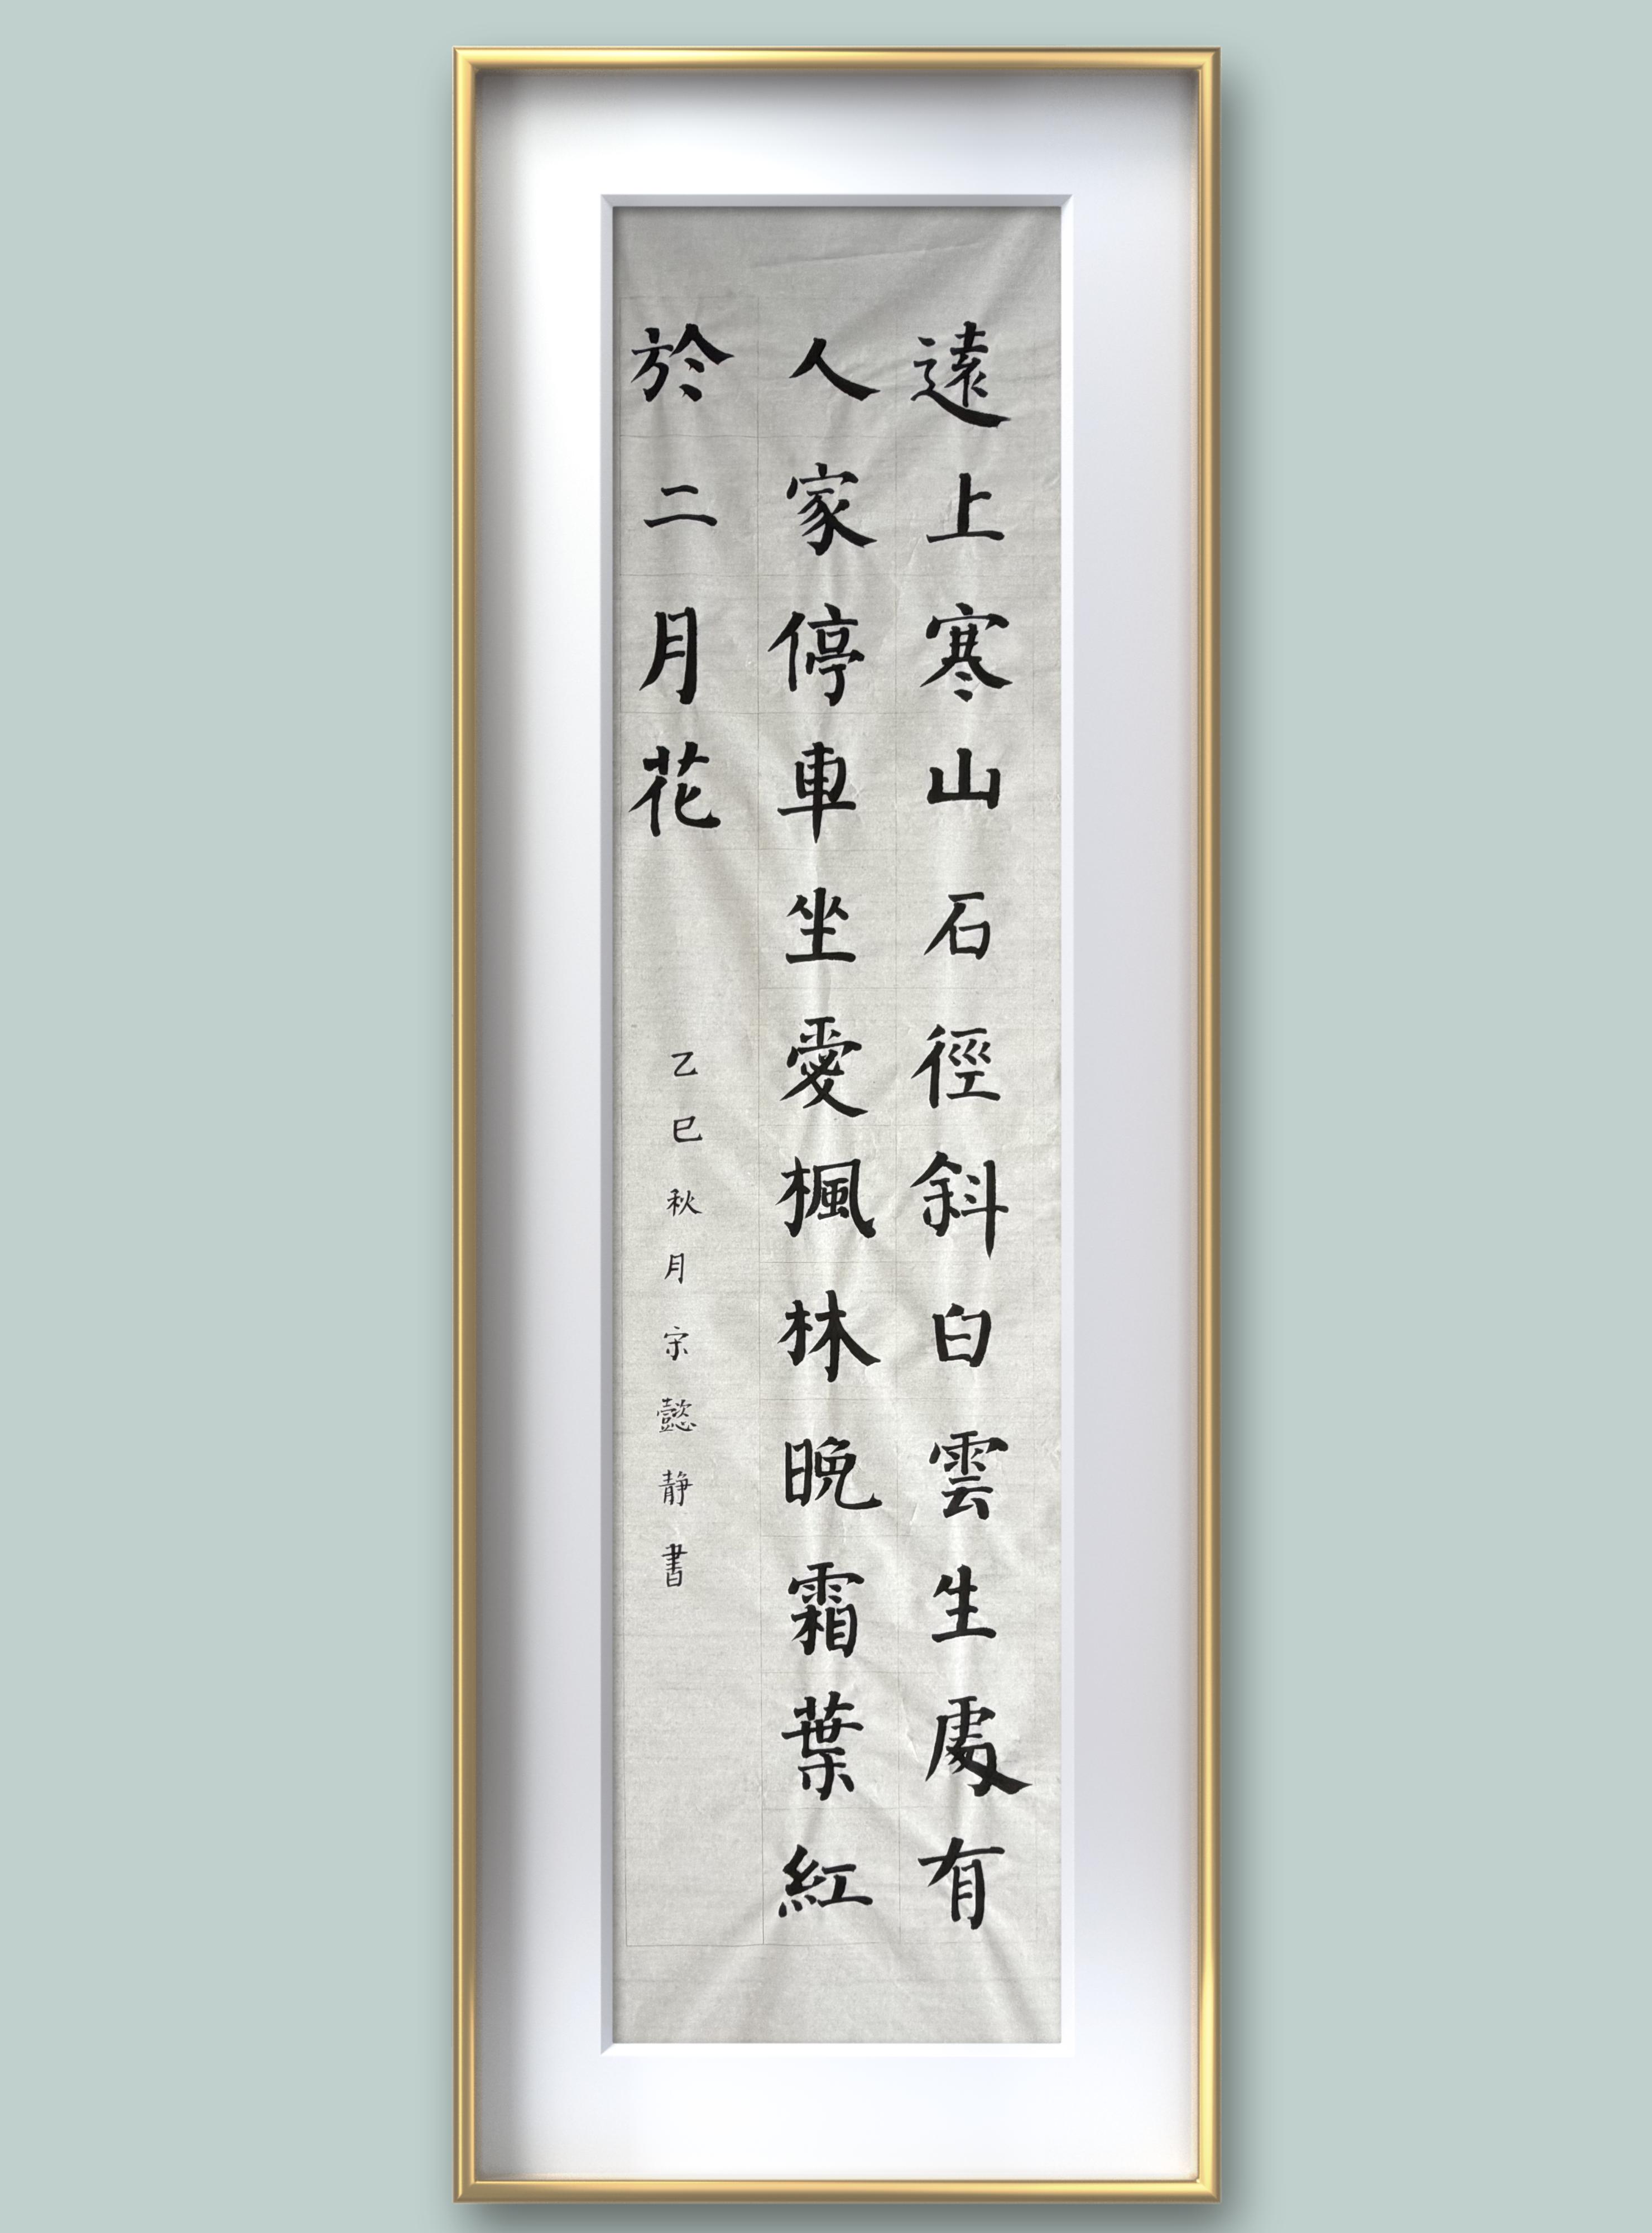 遠上寒山石徑斜白雲生處有
人家停車坐愛楓林晚霜葉紅
於二月花
乙巳秋月宋懿静書